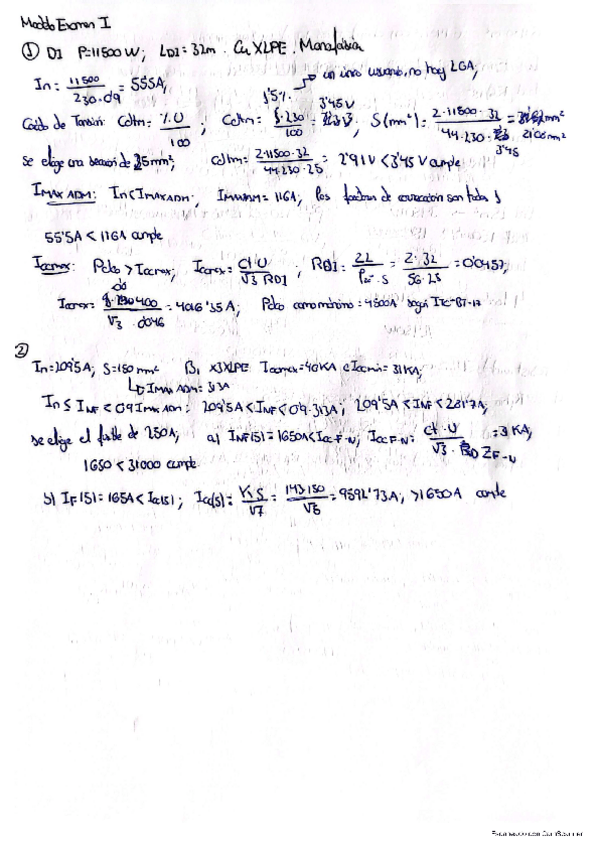 Modelo Examen I
① DI P=11500W; LDI=32m. Cu XLPE. Monofásica
In = 11500 / 230·0'9 = 55'5A; → un único usuario, no hay LGA;
Caída de Tensión: Cdtm = %·U / 100; 1'5%. Cdtm = 230 / 100 = 3'45V; S(mm²) = 2·11500·32 / 44·230·3'45 = 21'08 mm²
se elige una sección de 25mm²; Cdtm = 2·11500·32 / 44·230·25 = 2'91V < 3'45V cumple
IMAX ADM: In<IMAX ADM; IMAXADM = 116A; los factores de corrección son todos 1
55'5A < 116A cumple
Iccmax: Pdc > Iccmax; Iccmax = Ct·U / √3 RDI; RDI = 2L / ·S = 2·32 / 56·25 = 0'0457;
Iccmax = 400 / √3·0'046 = 4016'35A; Pdc como mínimo = 4500A según ITC-BT-17
②
In=209'5A; S=150mm² B1 X3XLPE Iccmax=40KA e Iccmin=31KA;
↳ IMAX ADM = 313A
In ≤ INF < 0'9 IMAX ADM; 209'5A<INF<0'9·313A; 209'5A<INF<281'7A;
se elige el fusible de 250A; a) INF(5)=1650A<Icc F-N; Icc F-N = Ct·U / √3· ZF-N = 31KA;
1650<31000 cumple.
b) IF(5)=1650A<Ics(5); Ics(5) = K·S / √T = 143·150 / √5 = 9592'73A; >1650A cumple